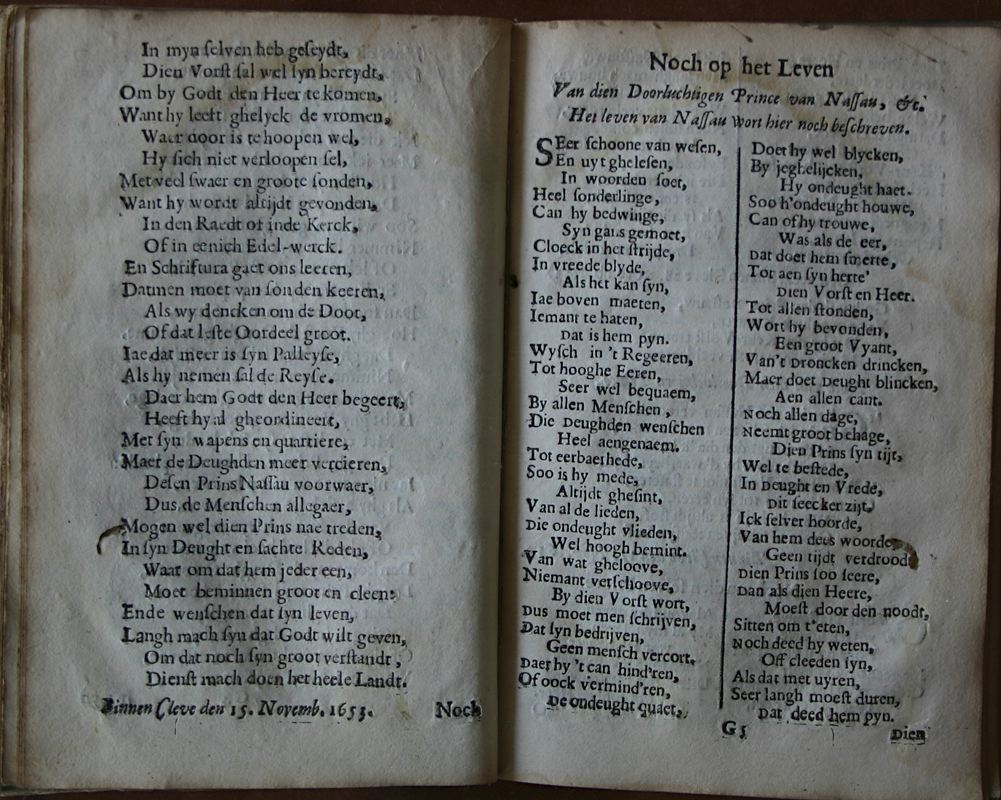 In myn ſelven heb geſeydt,
Dien Vorſt ſal wel ſyn bereydt,
Om by Godt den Heer te komen,
Want hy leeft ghelyck de vromen,
Waer door is te hoopen wel,
Hy ſich niet verloopen ſel,
Met veel ſwaer en groote ſonden,
Want hy wordt altijdt gevonden,
In den Raedt of inde Kerck,
Of in eenich Edel-werck.
En Schriftura gaet ons leeren,
Datmen moet van ſonden keeren,
Als wy dencken om de Doot,
Of dat leſte Oordeel groot.
Iae dat meer is ſyn Palleyſe,
Als hy nemen ſal de Reyſe.
Daer hem Godt den Heer begeert,
Heeft hy al gheordineert,
Met ſyn wapens en quartiere,
Maer de Deughden meer vercieren,
Deſen Prins Naſſau voorwaer,
Dus de Menſchen allegaer,
Mogen wel dien Prins nae treden,
In ſyn Deught en ſachte Reden,
Waar om dat hem jeder een,
Moet beminnen groot en cleen:
Ende wenſchen dat ſyn leven,
Langh mach ſyn dat Godt wilt geven,
Om dat noch ſyn groot verſtandt,
Dienſt mach doen het heele Landt.
Binnen Cleve den 15. Novemb. 1653.
Noch
Noch op het Leven
Van dien Doorluchtigen Prince van Naſſau, &c.
Het leven van Naſſau wort hier noch beſchreven.
SEer ſchoone van weſen,
En uyt gheleſen,
In woorden ſoet,
Heel ſonderlinge,
Can hy bedwinge,
Syn gans gemoet,
Cloeck in het ſtrijde,
In vreede blyde,
Als het kan ſyn,
Iae boven maeten,
Iemant te haten,
Dat is hem pyn.
Wyſch in 't Regeeren,
Tot hooghe Eeren,
Seer wel bequaem,
By allen Menſchen,
Die Deughden wenſchen
Heel aengenaem.
Tot eerbaerhede,
Soo is hy mede,
Altijdt gheſint,
Van al de lieden,
Die ondeught vlieden,
Wel hoogh bemint.
Van wat gheloove,
Niemant verſchoove,
By dien Vorſt wort,
Dus moet men ſchrijven,
Dat ſyn bedrijven,
Geen menſch vercort.
Daer hy 't can hind'ren,
Of oock vermind'ren,
De ondeught quaet,
Doet hy wel blycken,
By jeghelijcken,
Hy ondeught haet.
Soo h'ondeught houwe,
Can of hy trouwe,
Was als de eer,
Dat doet hem ſmerte,
Tot aen ſyn herte'
Dien Vorſt en Heer.
Tot allen ſtonden,
Wort hy bevonden,
Een groot Vyant,
Van't Droncken drincken,
Maer doet Deught blincken,
Aen allen cant.
Noch allen dage,
Neemt groot behage,
Dien Prins ſyn tijt,
Wel te beſtede,
In Deught en Vrede,
Dit ſeecker zijt.
Ick ſelver hoorde,
Van hem dees woorde,
Geen tijdt verdroodt
Dien Prins ſoo ſeere,
Dan als dien Heere,
Moeſt door den noodt,
Sitten om t'eten,
Noch deed hy weten,
Off cleeden ſyn,
Als dat met uyren,
Seer langh moeſt duren,
Dat deed hem pyn.
G5
Dien